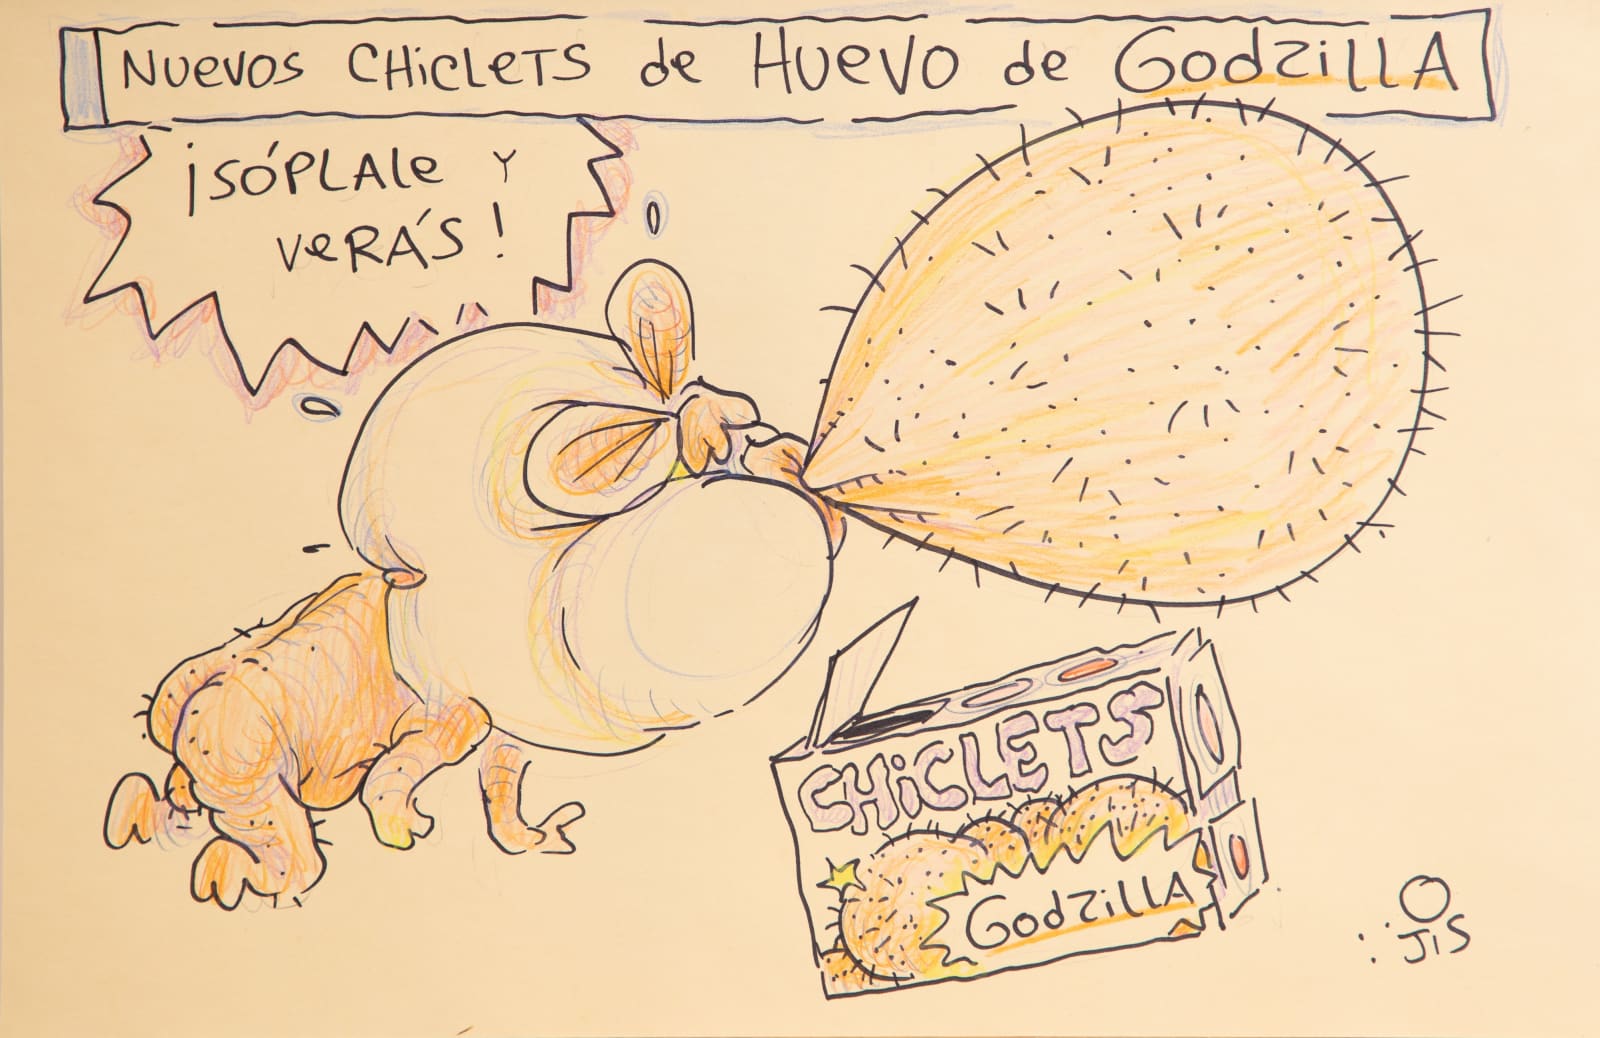 NUEVOS CHICLETS de HUEVO de GODZILLA
¡SÓPLALE Y
VERÁS!
CHICLETS
GODZILLA
JIS